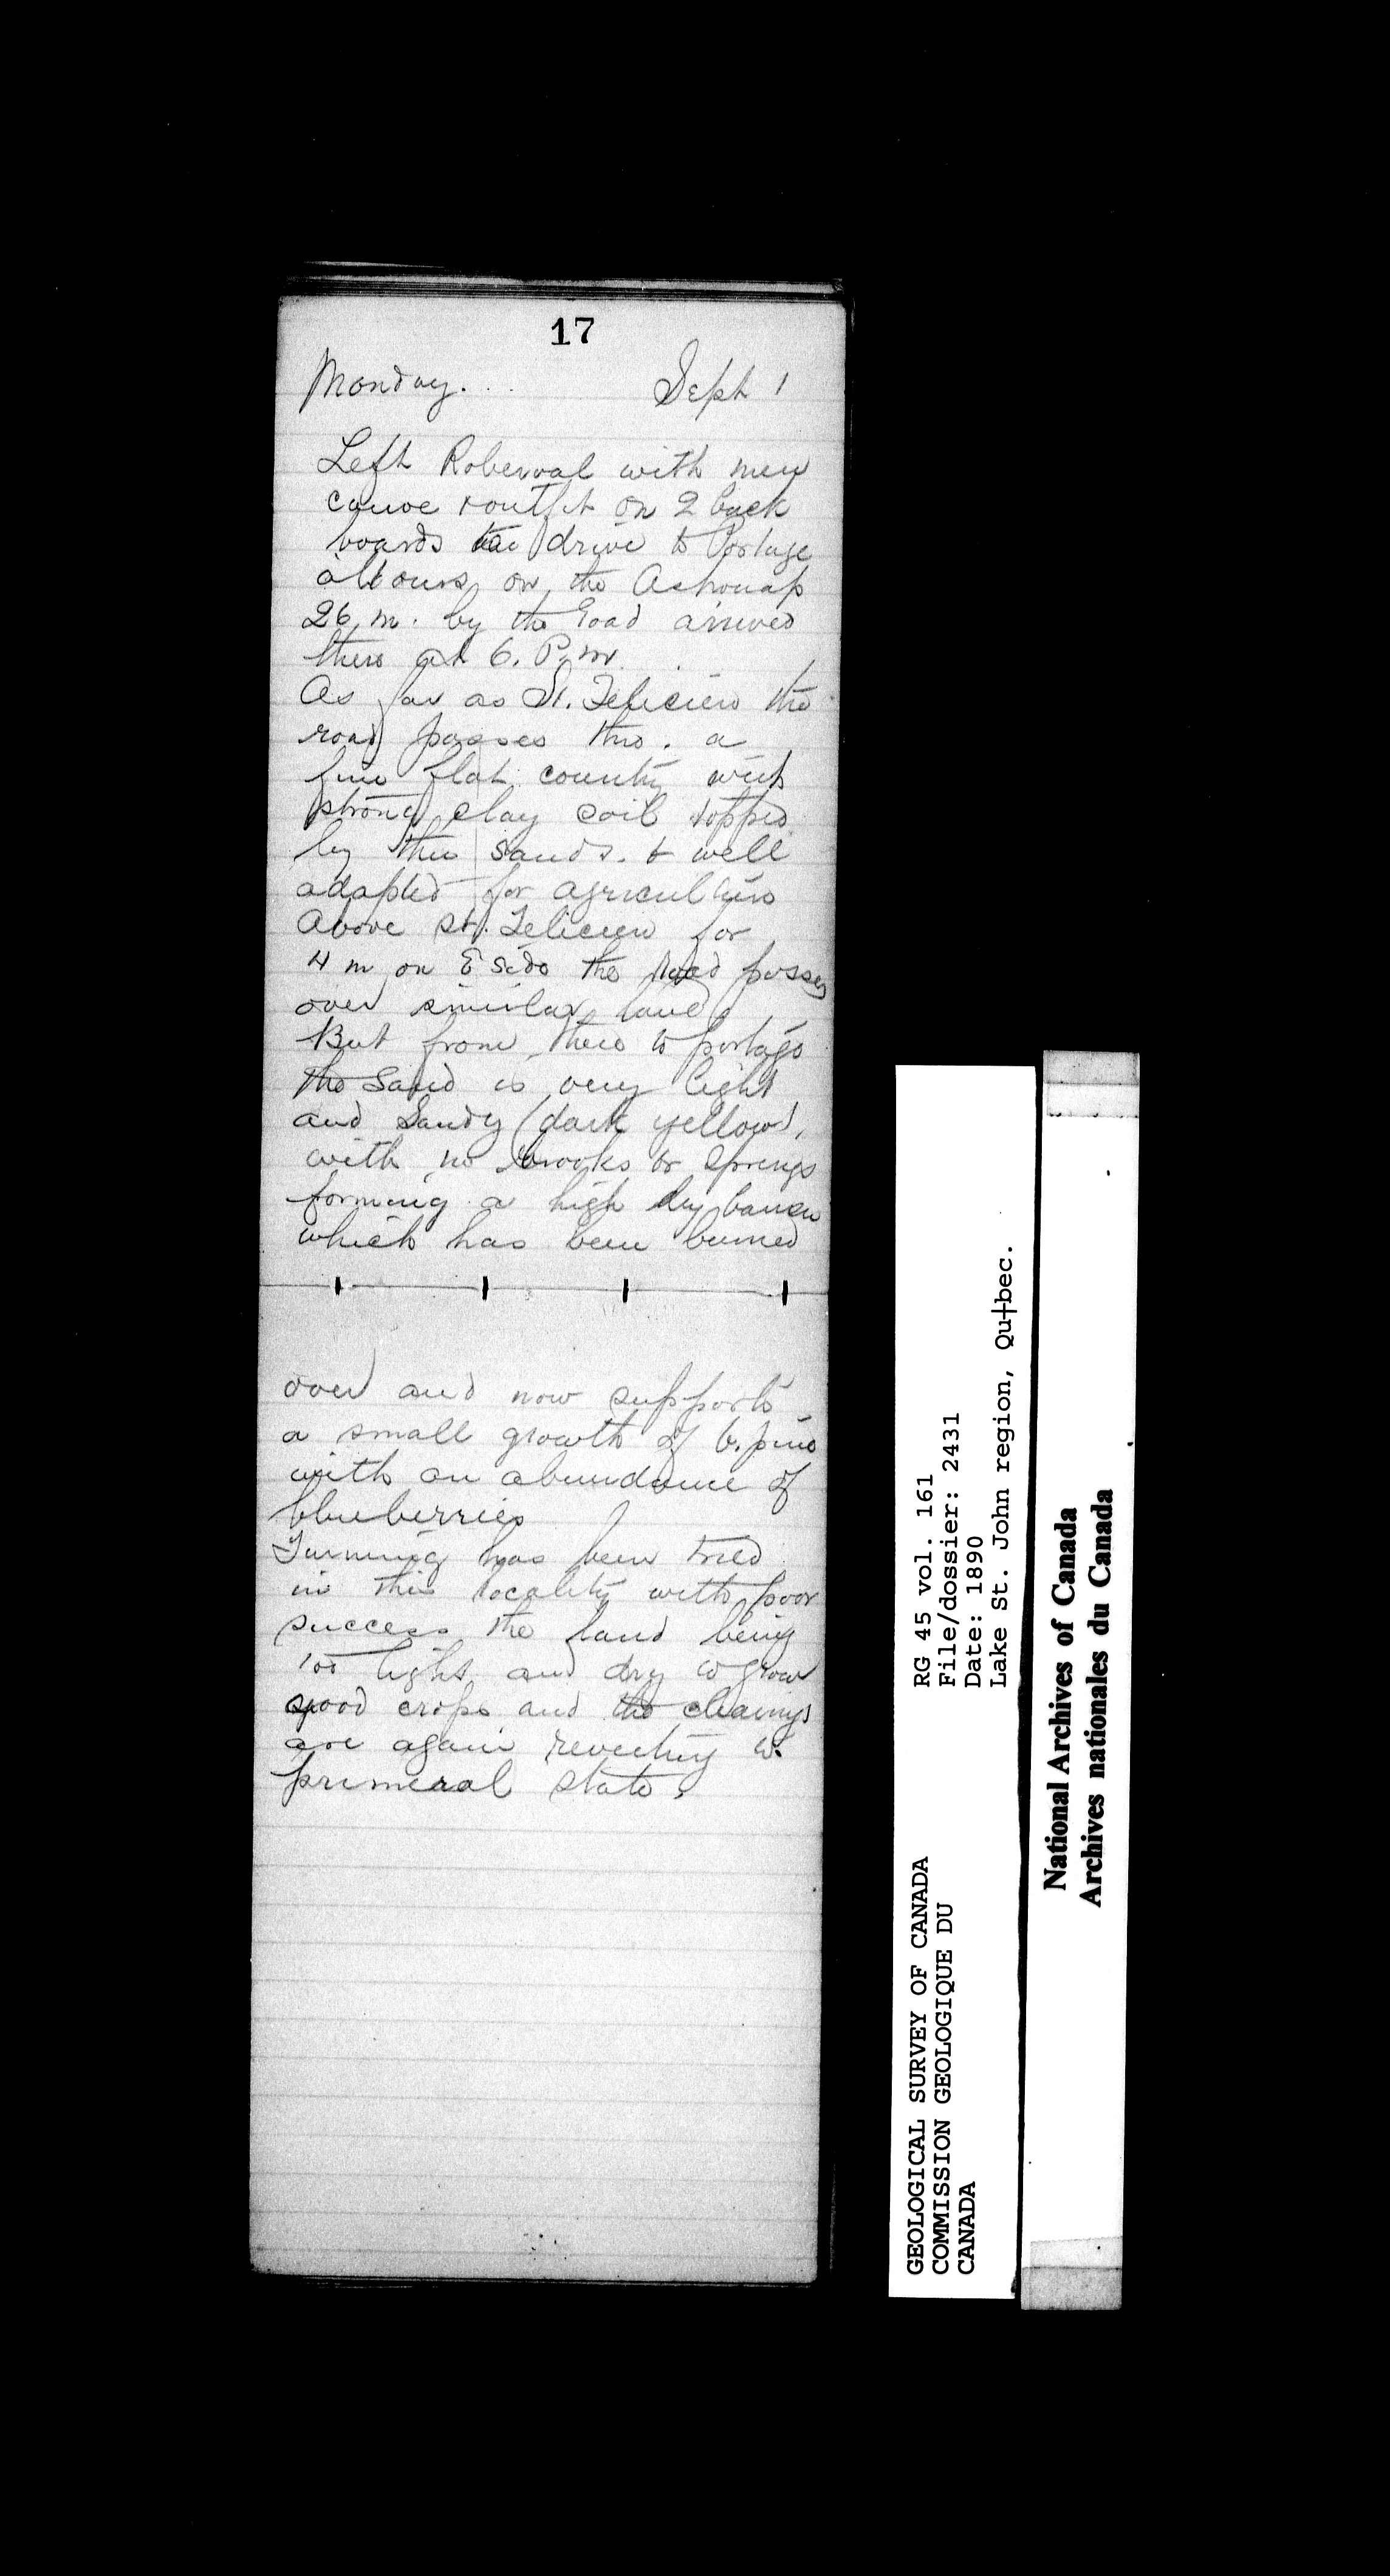 17
Monday. Sept 1
Left Roberval with men
canoe & outfit on 2 buck
boards drive to Portage
à l'ours on the Ashouap
26 m. by the road arrived
there at 6. P.m.
As far as St. Felicien the
road passes thro. a
fine flat country with
strong clay soil topped
by thin sands. & well
adapted for agriculture
Above St. Felicien for
4 m on E side the road passes
over similar land
But from there to portage
the Sand is very light
and Sandy (dark yellow),
with no brooks or springs
forming a high dry barren
which has been burned
over and now supports
a small growth of b. pine
with an abundance of
blueberries
Farming has been tried
in this locality with poor
success the land being
too light and dry to grow
good crops and the clearings
are again reverting to
primeral state.
RG 45 vol. 161
File/dossier: 2431
Date: 1890
Lake St. John region, Qu†bec.
GEOLOGICAL SURVEY OF CANADA
COMMISSION GEOLOGIQUE DU
CANADA
National Archives of Canada
Archives nationales du Canada